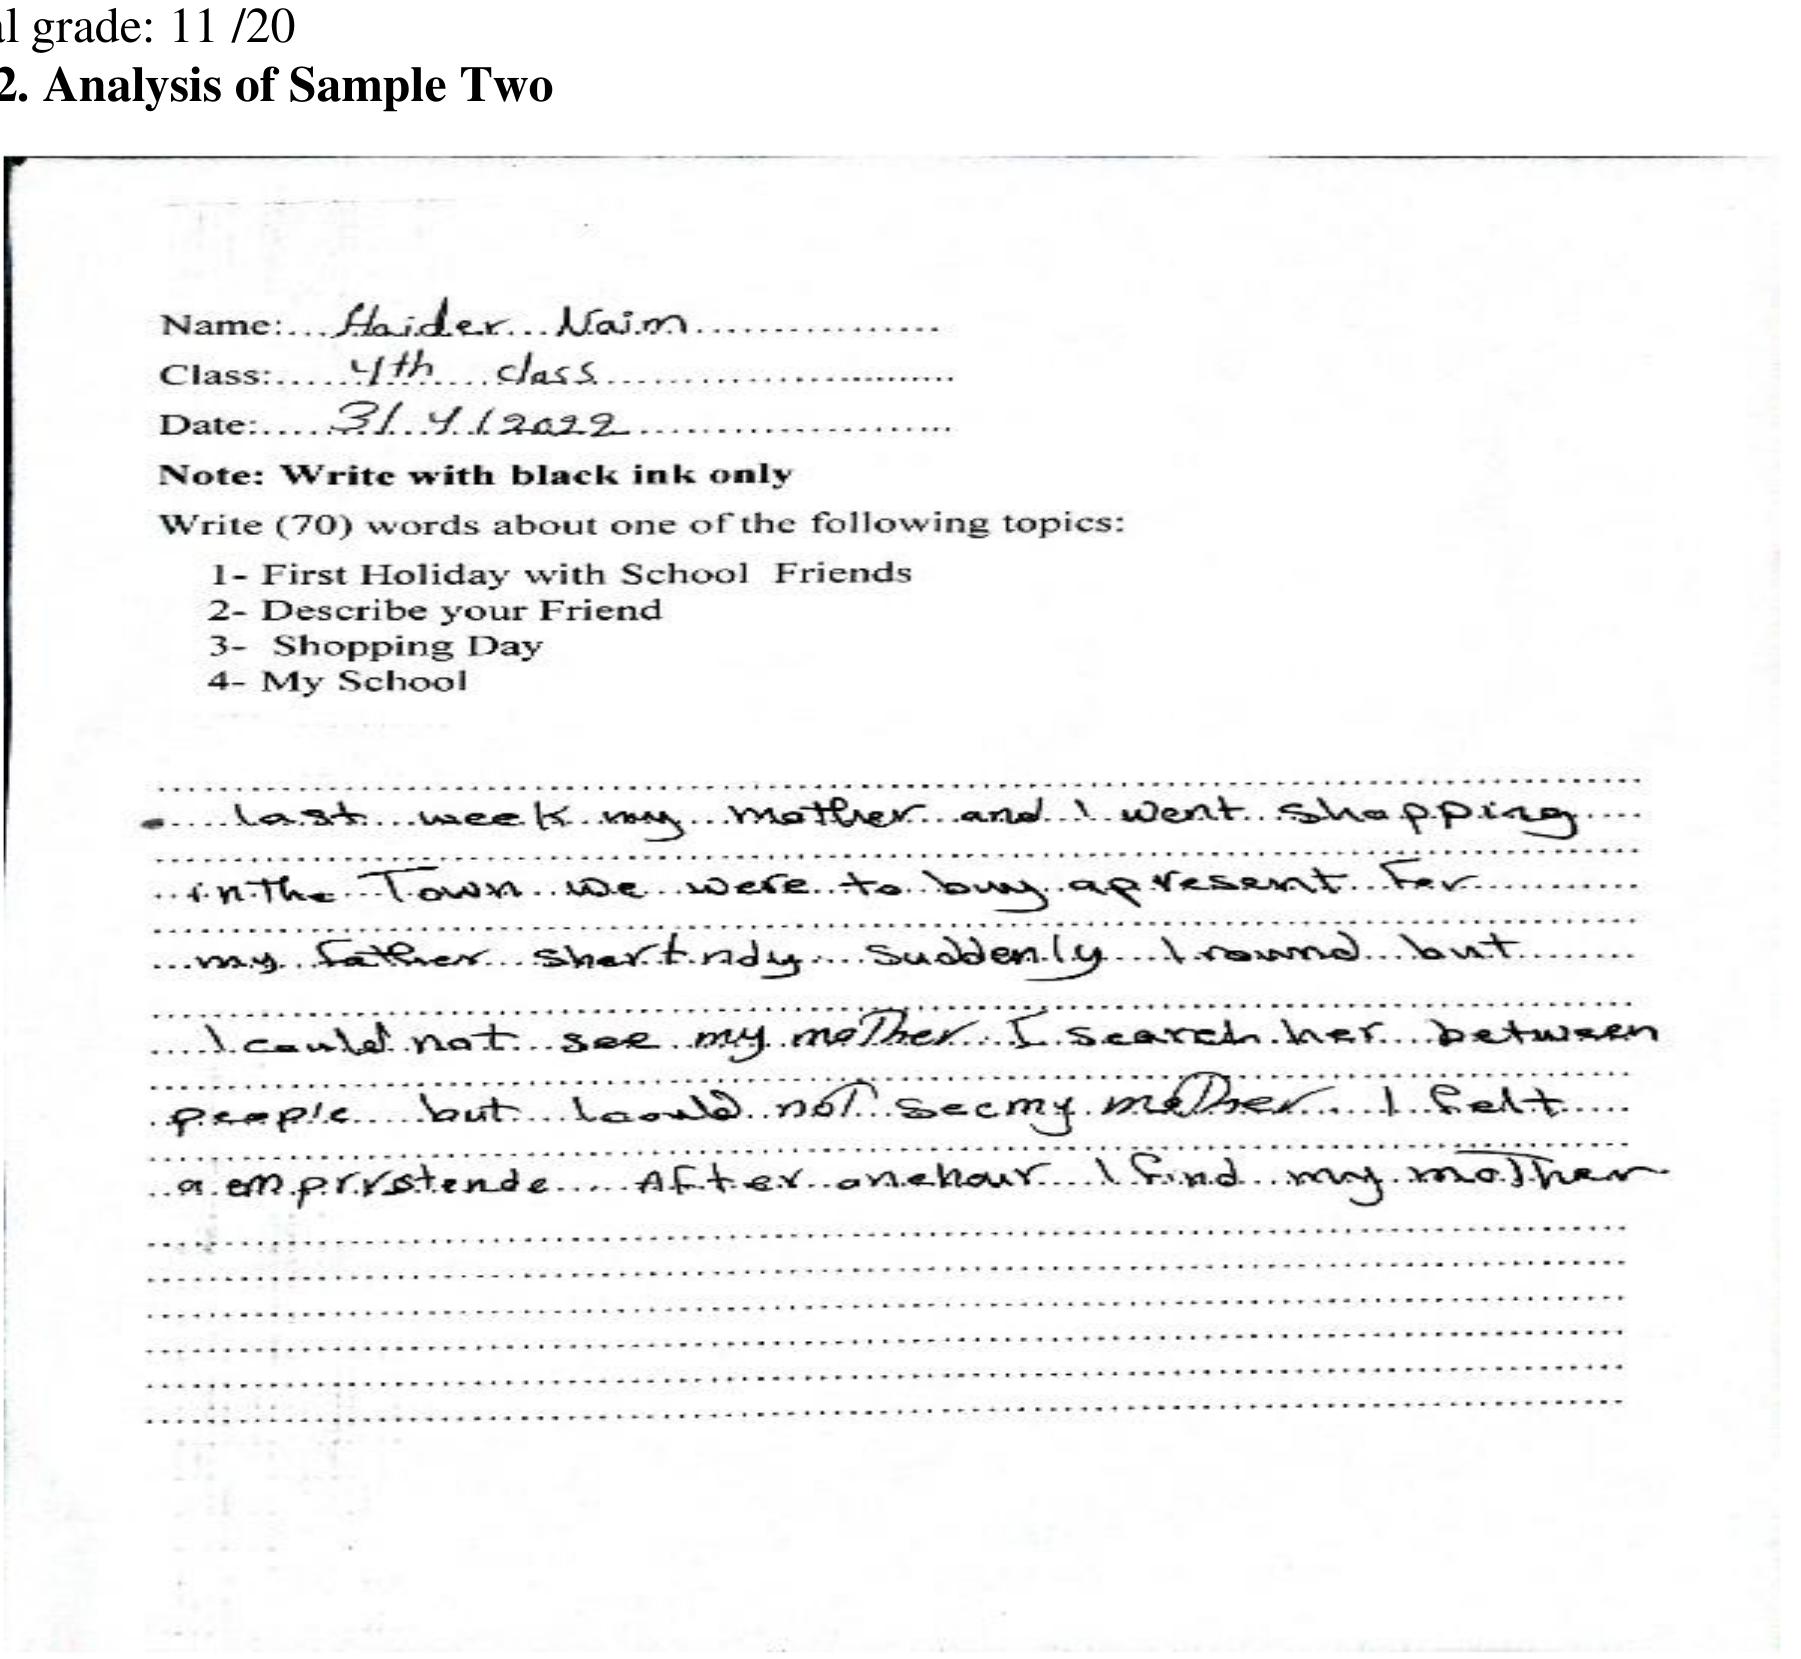 al grade: 11 /20
2. Analysis of Sample Two
Name:... Haider... Naim.................
Class:..... 4th .... class.........................
Date:..... 31. 4. / 2022........................
Note: Write with black ink only
Write (70) words about one of the following topics:
1- First Holiday with School Friends
2- Describe your Friend
3- Shopping Day
4- My School
last week my mother and I went shopping
in the Town we were to buy apresent For
my father shortndy suddenly I round but
I could not see my mother I search her between
people but I could not see my mother I felt
a After onehour I find my mother